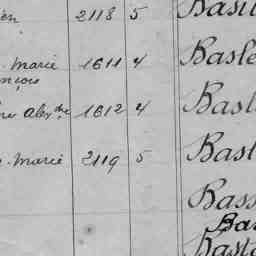 ien 2118 5 Basti
. Marie 1611 4 Basle
nçois
re Alexdre 1612 4 Basl
. Marie 2119 5 Bast
Bass
Bas
Basto